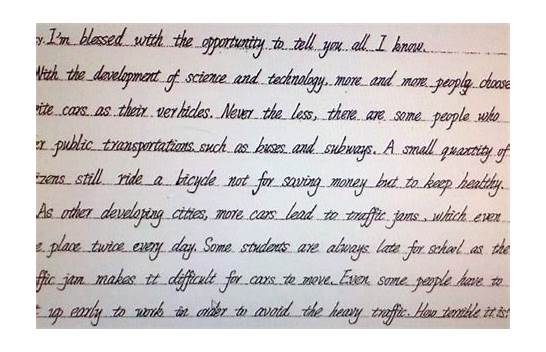 y. I'm blessed with the opportunity to tell you all I know.
With the development of science and technology, more and more people choose
ite cars as their verhicles. Never the less, there are some people who
er public transportations such as buses and subways. A small quantity of
izens still ride a bicycle not for saving money but to keep healthy.
As other developing cities, more cars lead to traffic jams, which even
e place twice every day. Some students are always late for school as the
ffic jam makes it difficult for cars to move. Even some people have to
t up early to work in order to avoid the heavy traffic. How terrible it is!